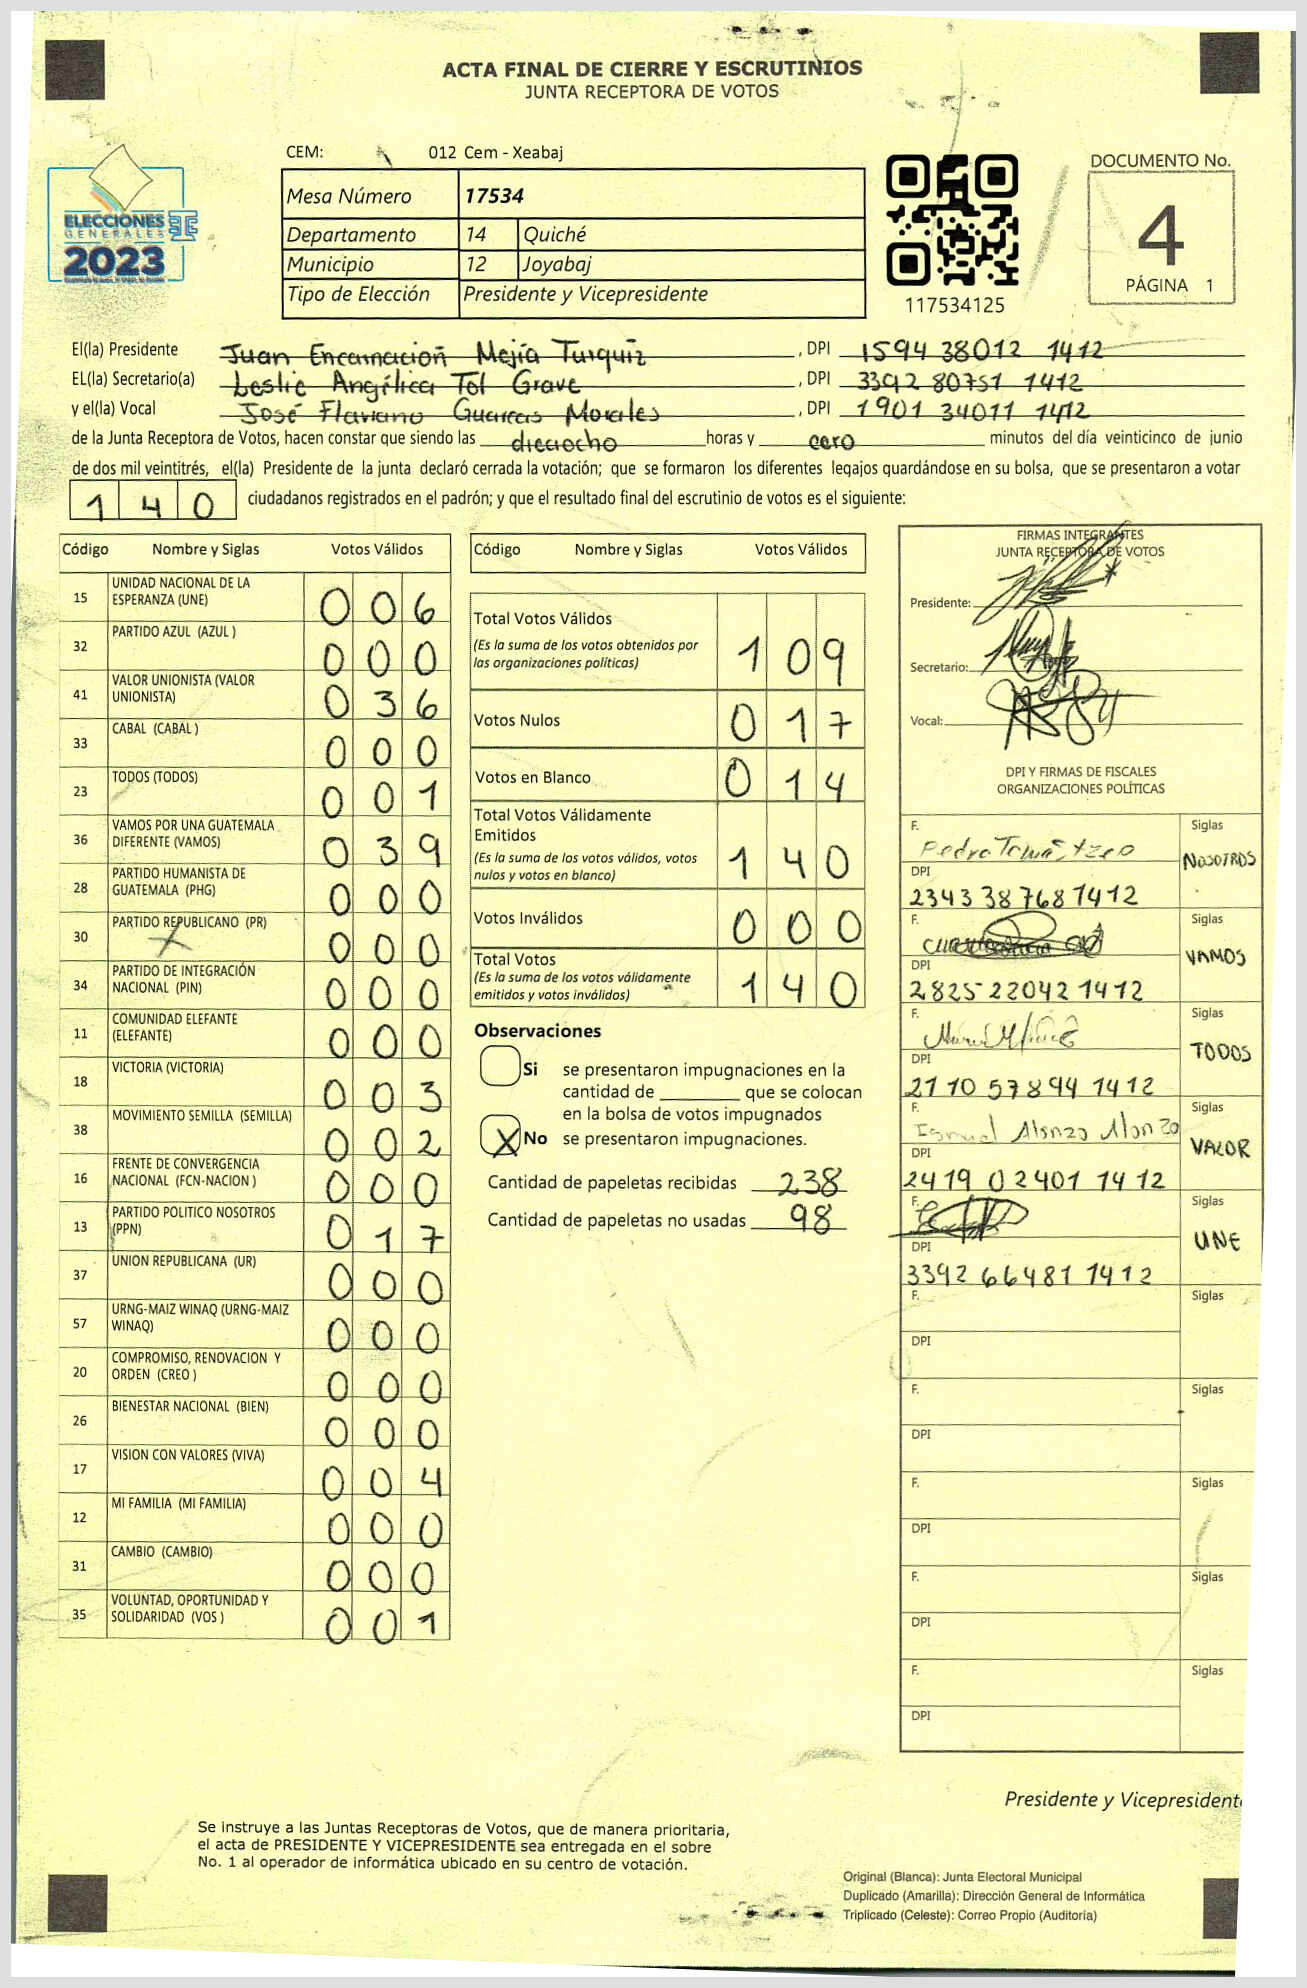 ACTA FINAL DE CIERRE Y ESCRUTINIOS
JUNTA RECEPTORA DE VOTOS
CEM: 012 Cem - Xeabaj
ELECCIONES
GENERALES
2023
Mesa Número 17534
Departamento 14 Quiché
Municipio 12 Joyabaj
Tipo de Elección Presidente y Vicepresidente
117534125
DOCUMENTO No.
4
PÁGINA 1
El(la) Presidente Juan Encarnación Mejía Turquiz, DPI 1594 38012 1412
EL(la) Secretario(a) Leslie Angélica Tol Grave, DPI 3392 80751 1412
y el(la) Vocal José Flaviano Guarcas Morales, DPI 1901 34011 1412
de la Junta Receptora de Votos, hacen constar que siendo las dieciocho horas y cero minutos del día veinticinco de junio
de dos mil veintitrés, el(la) Presidente de la junta declaró cerrada la votación; que se formaron los diferentes legajos guardándose en su bolsa, que se presentaron a votar
140 ciudadanos registrados en el padrón; y que el resultado final del escrutinio de votos es el siguiente:
Código Nombre y Siglas Votos Válidos
15 UNIDAD NACIONAL DE LA ESPERANZA (UNE) 006
32 PARTIDO AZUL (AZUL ) 000
41 VALOR UNIONISTA (VALOR UNIONISTA) 036
33 CABAL (CABAL ) 000
23 TODOS (TODOS) 001
36 VAMOS POR UNA GUATEMALA DIFERENTE (VAMOS) 039
28 PARTIDO HUMANISTA DE GUATEMALA (PHG) 000
30 PARTIDO REPUBLICANO (PR) 000
34 PARTIDO DE INTEGRACIÓN NACIONAL (PIN) 000
11 COMUNIDAD ELEFANTE (ELEFANTE) 000
18 VICTORIA (VICTORIA) 003
38 MOVIMIENTO SEMILLA (SEMILLA) 002
16 FRENTE DE CONVERGENCIA NACIONAL (FCN-NACION ) 000
13 PARTIDO POLITICO NOSOTROS (PPN) 017
37 UNION REPUBLICANA (UR) 000
57 URNG-MAIZ WINAQ (URNG-MAIZ WINAQ) 000
20 COMPROMISO, RENOVACION Y ORDEN (CREO ) 000
26 BIENESTAR NACIONAL (BIEN) 000
17 VISION CON VALORES (VIVA) 004
12 MI FAMILIA (MI FAMILIA) 000
31 CAMBIO (CAMBIO) 000
35 VOLUNTAD, OPORTUNIDAD Y SOLIDARIDAD (VOS ) 001
Código Nombre y Siglas Votos Válidos
Total Votos Válidos 109
(Es la suma de los votos obtenidos por
las organizaciones políticas)
Votos Nulos 017
Votos en Blanco 014
Total Votos Válidamente
Emitidos 140
(Es la suma de los votos válidos, votos
nulos y votos en blanco)
Votos Inválidos 000
Total Votos 140
(Es la suma de los votos válidamente
emitidos y votos inválidos)
Observaciones
Si se presentaron impugnaciones en la
cantidad de ________ que se colocan
en la bolsa de votos impugnados
X No se presentaron impugnaciones.
Cantidad de papeletas recibidas 238
Cantidad de papeletas no usadas 98
FIRMAS INTEGRANTES
JUNTA RECEPTORA DE VOTOS
Presidente:
Secretario:
Vocal:
DPI Y FIRMAS DE FISCALES
ORGANIZACIONES POLÍTICAS
F. Pedro Siglas
DPI NOSOTROS
2343 38768 1412
F. Siglas
DPI VAMOS
2825 22042 1412
F. Siglas
DPI TODOS
2110 57894 1412
F. Ismael Alonzo Alonzo Siglas
DPI VALOR
2419 02401 1412
F. Siglas
DPI UNE
3392 66481 1412
F. Siglas
DPI
F. Siglas
DPI
F. Siglas
DPI
F. Siglas
DPI
F. Siglas
DPI
Presidente y Vicepresident
Se instruye a las Juntas Receptoras de Votos, que de manera prioritaria,
el acta de PRESIDENTE Y VICEPRESIDENTE sea entregada en el sobre
No. 1 al operador de informática ubicado en su centro de votación.
Original (Blanca): Junta Electoral Municipal
Duplicado (Amarilla): Dirección General de Informática
Triplicado (Celeste): Correo Propio (Auditoría)